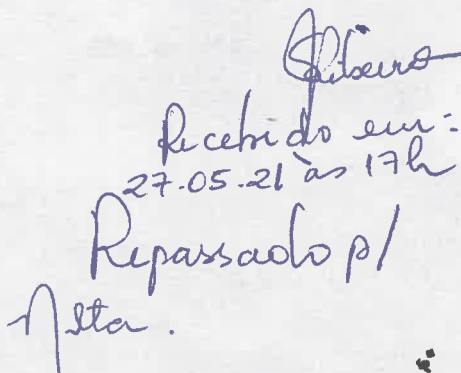 Ribeiro
Recebido em:
27.05.21 às 17h
Repassado p/
Neta.